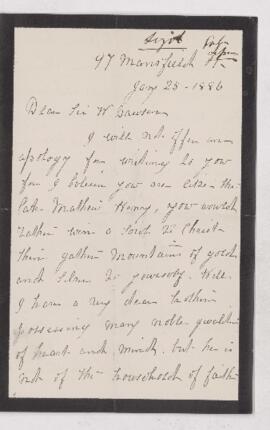 97 Mansfield St.
Jany 25 - 1886
Dear Sir W Dawson
I will not offer an
apology for writing to you
for I believe you are like the
late Mathew Henry, you would
rather win a soul to Christ
than gather mountains of gold
and silver to yourself. Well
I have a very dear brother
possessing many noble qualities
of heart and mind. but he is
not of the household of faith